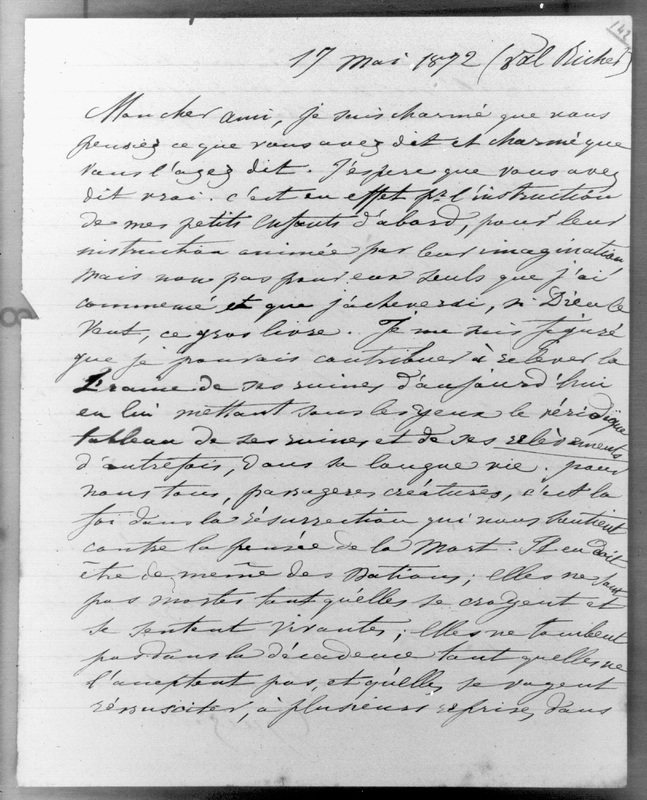 142
17 Mai 1872 (Val Richer)
Mon cher ami, je suis charmé que vous
pensiez ce que vous avez dit et charmé que
vous l'ayez dit. J'espere que vous avez
dit vrai. c'est en effet pr l'instruction
de mes petits enfants d'abord, pour leur
instruction animée par leur imagination,
mais non pas pour eux seuls que j'ai
commencé et que j'acheverai, si Dieu le
veut, ce gros livre. Je me suis figuré
que je pourrais contribuer à relever la
France de ses ruines d'aujourd'hui
en lui mettant sous les yeux le véridique
tableau de ses ruines et de ses relèvements
d'autrefois, dans sa longue vie. pour
nous tous, passageres créatures, c'est la
foi dans la résurrection qui nous soutient
contre la pensée de la Mort. Il en doit
être de même des Nations; elles ne sont
pas mortes tant qu'elles se croyent et
se sentent vivantes; elles ne tombent
pas dans la décadence tant qu'elles ne
l'acceptent pas, et qu'elles se voyent
réssusciter, à plusieurs reprises, dans